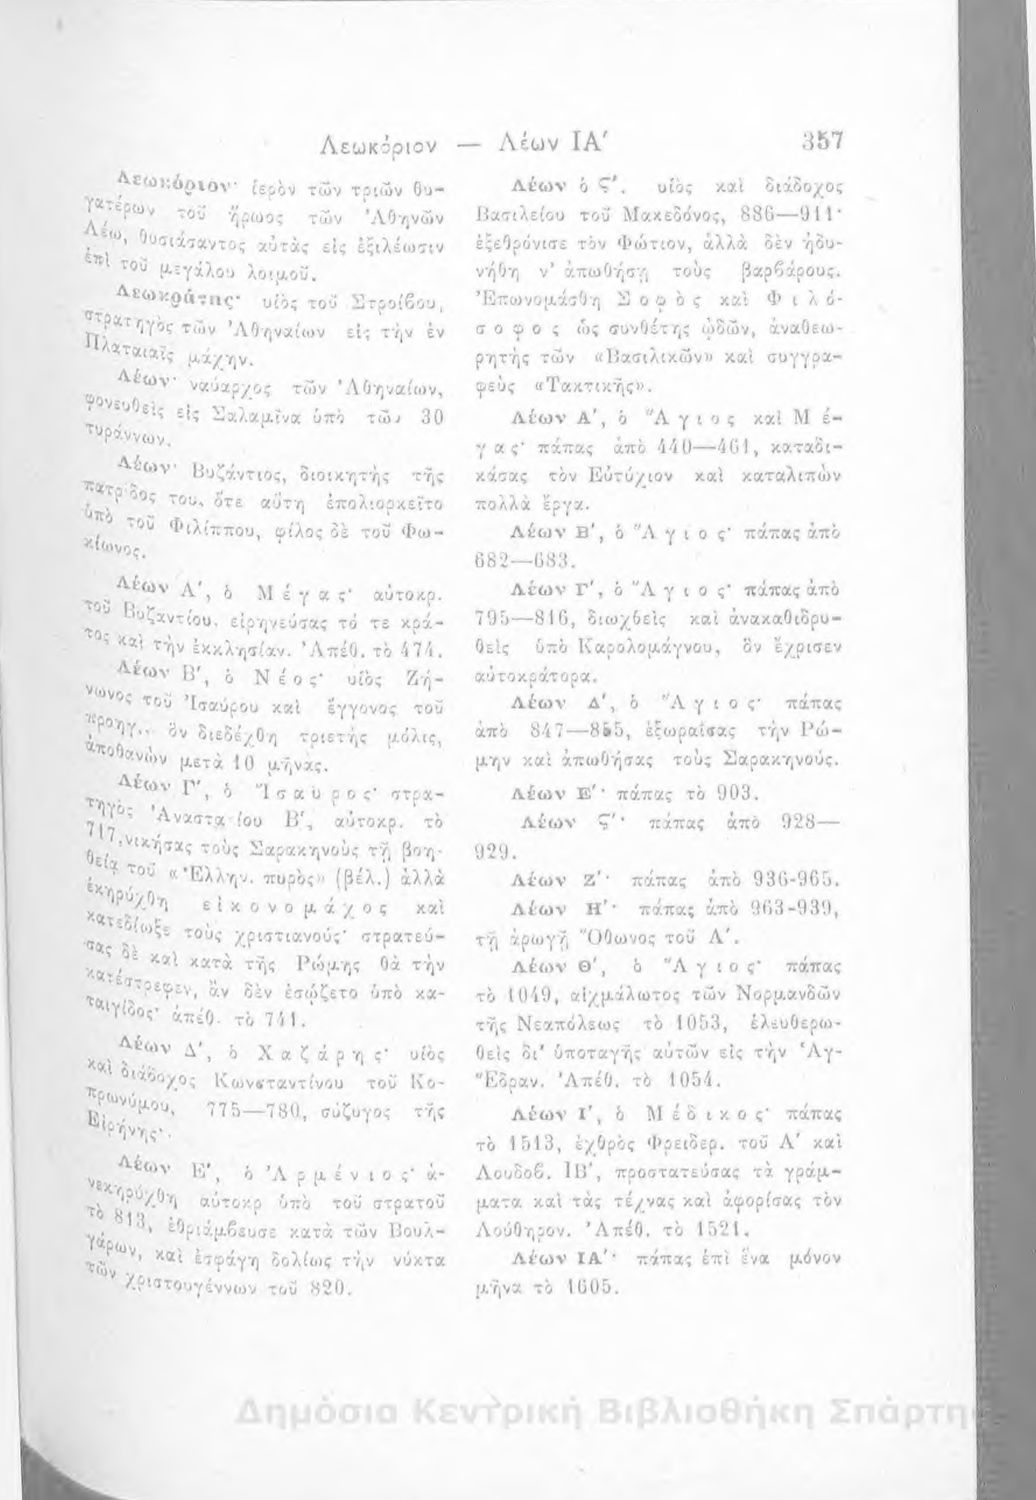 Λεωκόριον — Λέων ΙΑ' 357
Λεωκόριον· ἱερὸν τῶν τριῶν θυ-
γατέρων τοῦ ἥρωος τῶν Ἀθηνῶν
Λέω, θυσιάσαντος αὐτὰς εἰς ἐξιλέωσιν
ἐπὶ τοῦ μεγάλου λοιμοῦ.
Λεωκράτης· υἱὸς τοῦ Στροίβου,
στρατηγὸς τῶν Ἀθηναίων εἰς τὴν ἐν
Πλαταιαῖς μάχην.
Λέων· ναύαρχος τῶν Ἀθηναίων,
φονευθεὶς εἰς Σαλαμῖνα ὑπὸ τῶν 30
τυράννων.
Λέων· Βυζάντιος, διοικητὴς τῆς
πατρίδος του, ὅτε αὕτη ἐπολιορκεῖτο
ὑπὸ τοῦ Φιλίππου, φίλος δὲ τοῦ Φω-
κίωνος.
Λέων Α', ὁ Μέγας· αὐτοκρ.
τοῦ Βυζαντίου, εἰρηνεύσας τό τε κρά-
τος καὶ τὴν ἐκκλησίαν. Ἀπέθ. τὸ 474.
Λέων Β', ὁ Νέος· υἱὸς Ζή-
νωνος τοῦ Ἰσαύρου καὶ ἔγγονος τοῦ
προηγ., ὃν διεδέχθη τριετὴς μόλις,
ἀποθανὼν μετὰ 10 μῆνας.
Λέων Γ', ὁ Ἴσαυρος· στρα-
τηγὸς Ἀναστασίου Β', αὐτοκρ. τὸ
717, νικήσας τοὺς Σαρακηνοὺς τῇ βοη-
θείᾳ τοῦ «Ἑλλην. πυρὸς» (βέλ.) ἀλλὰ
ἐκηρύχθη εἰκονομάχος καὶ
κατεδίωξε τοὺς χριστιανούς· στρατεύ-
σας δὲ καὶ κατὰ τῆς Ρώμης θὰ τὴν
κατέστρεφεν, ἂν δὲν ἐσῴζετο ὑπὸ κα-
ταιγίδος· ἀπέθ. τὸ 741.
Λέων Δ', ὁ Χαζάρης· υἱὸς
καὶ διάδοχος Κωνσταντίνου τοῦ Κο-
πρωνύμου, 775—780, σύζυγος τῆς
Εἰρήνης·.
Λέων Ε', ὁ Ἀρμένιος· ἀ-
νεκηρύχθη αὐτοκρ ὑπὸ τοῦ στρατοῦ
τὸ 813, ἐθριάμβευσε κατὰ τῶν Βουλ-
γάρων, καὶ ἐσφάγη δολίως τὴν νύκτα
τῶν χριστουγέννων τοῦ 820.
Λέων ὁ Ϛ'. υἱὸς καὶ διάδοχος
Βασιλείου τοῦ Μακεδόνος, 886—911·
ἐξεθρόνισε τὸν Φώτιον, ἀλλὰ δὲν ἠδυ-
νήθη ν' ἀπωθήσῃ τοὺς βαρβάρους.
Ἐπωνομάσθη Σοφὸς καὶ Φιλό-
σοφος ὡς συνθέτης ᾠδῶν, ἀναθεω-
ρητὴς τῶν «Βασιλικῶν» καὶ συγγρα-
φεὺς «Τακτικῆς».
Λέων Α', ὁ Ἅγιος καὶ Μέ-
γας· πάπας ἀπὸ 440—461, καταδι-
κάσας τὸν Εὐτύχιον καὶ καταλιπὼν
πολλὰ ἔργα.
Λέων Β', ὁ Ἅγιος· πάπας ἀπὸ
682—683.
Λέων Γ', ὁ Ἅγιος· πάπας ἀπὸ
795—816, διωχθεὶς καὶ ἀνακαθιδρυ-
θεὶς ὑπὸ Καρολομάγνου, ὃν ἔχρισεν
αὐτοκράτορα.
Λέων Δ', ὁ Ἅγιος· πάπας
ἀπὸ 847—855, ἐξωραΐσας τὴν Ρώ-
μην καὶ ἀπωθήσας τοὺς Σαρακηνούς.
Λέων Ε'· πάπας τὸ 903.
Λέων Ϛ'· πάπας ἀπὸ 928—
929.
Λέων Ζ'· πάπας ἀπὸ 936-965.
Λέων Η'· πάπας ἀπὸ 963-939,
τῇ ἀρωγῇ Ὄθωνος τοῦ Α'.
Λέων Θ', ὁ Ἅγιος· πάπας
τὸ 1049, αἰχμάλωτος τῶν Νορμανδῶν
τῆς Νεαπόλεως τὸ 1053, ἐλευθερω-
θεὶς δι' ὑποταγῆς αὐτῶν εἰς τὴν Ἁγ-
Ἕδραν. Ἀπέθ. τὸ 1054.
Λέων Ι', ὁ Μέδικος· πάπας
τὸ 1513, ἐχθρὸς Φρειδερ. τοῦ Α' καὶ
Λουδοβ. ΙΒ', προστατεύσας τὰ γράμ-
ματα καὶ τὰς τέχνας καὶ ἀφορίσας τὸν
Λούθηρον. Ἀπέθ. τὸ 1521.
Λέων ΙΑ'· πάπας ἐπὶ ἕνα μόνον
μῆνα τὸ 1605.
Δημόσια Κεντρική Βιβλιοθήκη Σπάρτη